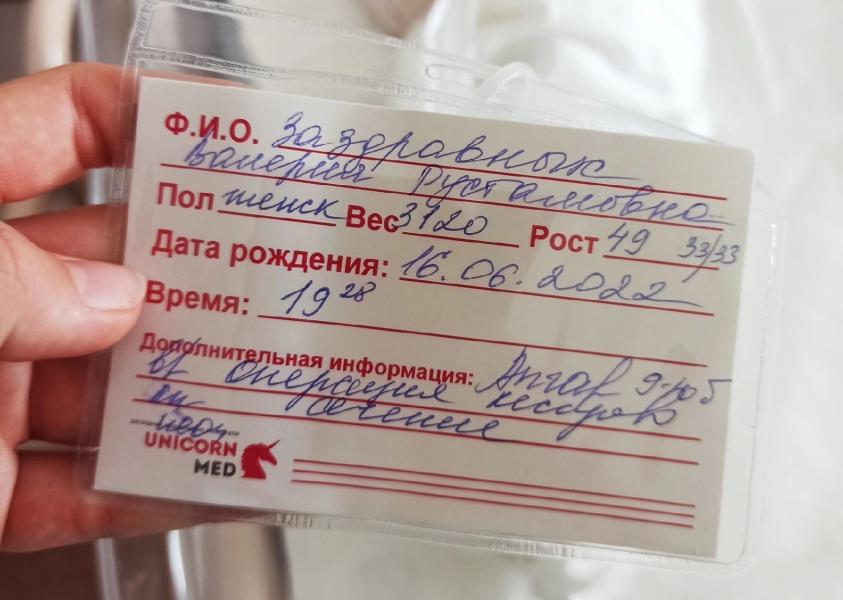 Ф.И.О. Заздравных
Валерия Рустамовна
Пол женск Вес 3120 Рост 49 33/33
Дата рождения: 16.06.2022
Время: 19 28
Дополнительная информация: Апгар 9-10 б
операция кесарево
сечение
UNICORN
MED